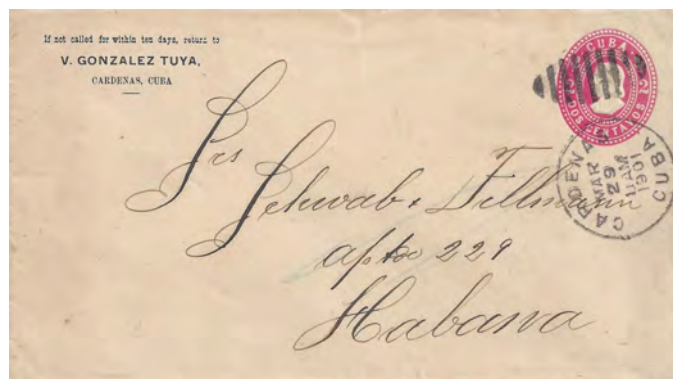 If not called for within ten days, return to
V. GONZALEZ TUYA,
CARDENAS, CUBA
CUBA
2 2
DOS CENTAVOS
CARDENAS
MAR
29
11AM
1901
CUBA
Srs
Schwab & Tillmann
aptdo 229
Habana